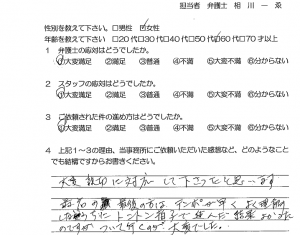 担当者 弁護士 相川一ゑ
性別を教えて下さい。 □男性 ☑女性
年齢を教えて下さい □20代□30代□40代□50代☑60代□70才以上
1 弁護士の応対はどうでしたか。
①大変満足 ②満足 ③普通 ④不満 ⑤大変不満 ⑥分からない
2 スタッフの応対はどうでしたか。
①大変満足 ②満足 ③普通 ④不満 ⑤大変不満 ⑥分からない
3 ご依頼された件の進め方はどうでしたか。
①大変満足 ②満足 ③普通 ④不満 ⑤大変不満 ⑥分からない
4 上記1~3の理由、当事務所にご依頼いただいた感想など、どのようなこと
でも結構ですからお書きください。
大変親切に対応して下さったと思います
最後の方はテンポが早く
うちにトントン拍子で進んだ結果
のですが ついて行くのが大変でした。